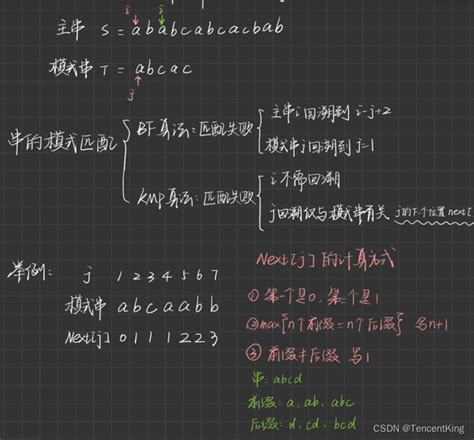 i i
主串 S = ababcabcacbab
模式串 T = abcac
j
串的模式匹配
BF算法:匹配失败
主串i回溯到 i-j+2
模式串j回溯到 j=1
KMP算法:匹配失败
i不需回溯
j回溯仅与模式串有关 j的下个位置next[
举例: j 1 2 3 4 5 6 7
模式串 a b c a a b b
Next[j] 0 1 1 1 2 2 3
Next[j]的计算方式
① 第一个是0, 第二个是1
②max{n个前缀=n个后缀} 写n+1
③ 前缀≠后缀 写1
串: abcd
前缀: a、ab、abc
后缀: d、cd、bcd
CSDN @TencentKing